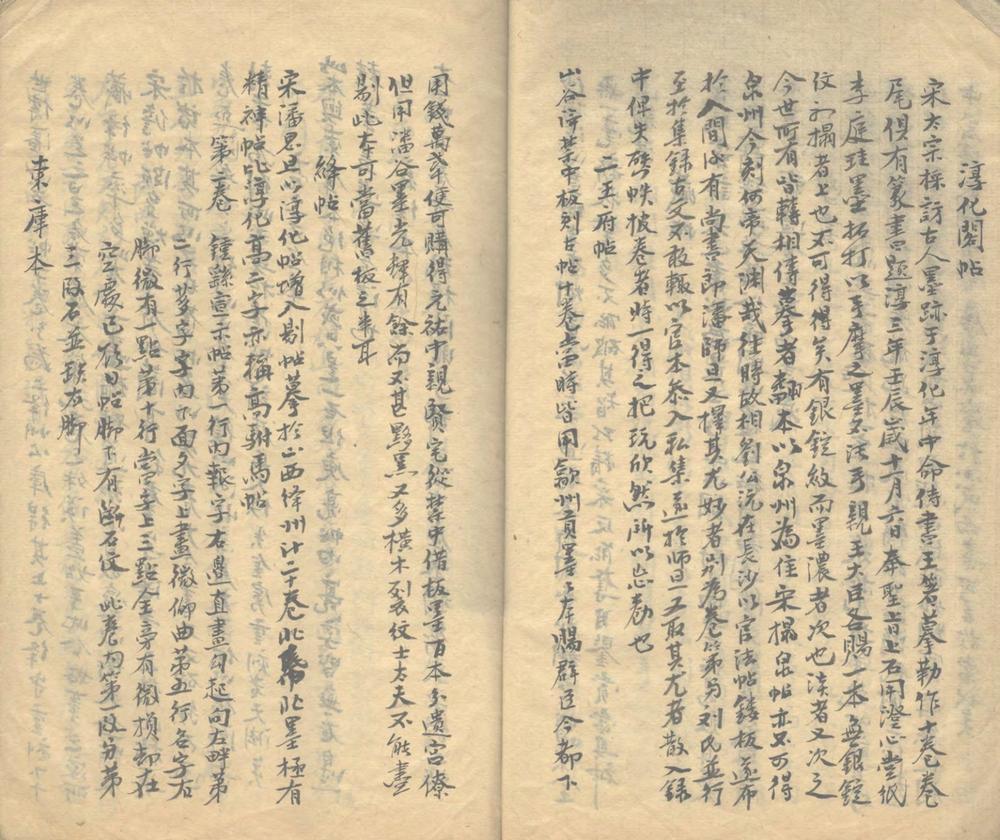 淳化閣帖
宋太宗採訪古人墨跡于淳化年中命侍書王著摹勒作十卷卷
尾俱有篆書題淳三年壬辰歲十一月六日奉聖旨上石用澄心堂紙
李庭珪墨拓打以手摩之墨不汚手親王大臣各賜一本無銀錠
紋初搨者上也不可得得矣有銀錠紋而墨濃者次也淡者又次之
今世所有皆轉相傳摹者翻本以泉州為佳宋搨泉帖亦不可得
泉州今刻何啻天淵哉往時故相劉公沆在長沙以官法帖鏤板遂布
於人間後有尚書郎潘師旦又擇其尤妙者別為卷第與刘氏並行
至於集録古文不敢輙以官本叅入私集遂於師旦又取其尤者散入録
中俾夫啓帙披卷者時一得之把玩欣然所以忘勌也
二王府帖
山谷謂禁中板刻古帖十卷當時皆用歙州貢墨墨本賜群臣今都下
用錢萬二千便可購得元祐中親賢宅從禁中借板墨百本分遺宮僚
但用潘谷墨光輝有餘而不甚黟黑又多橫木裂紋士大夫不能盡
別此本可當舊板之半耳
絳帖
宋潘思旦以淳化帖增入別帖摹於山西絳州计二十卷北帋北墨極有
精神帖比淳化高二字亦稱為駙馬帖
第一卷 鍾繇宣示帖第一行内報字右邊直畫勾起向左畔第
二行苃字字内下面夕字上畫微仰曲第五行名字右
脚微有一點第十行當字上三點全旁有微損却在
空處已頃日帖脚下有断石紋 此卷内第一段與第
三段石並缺左脚
東庫本